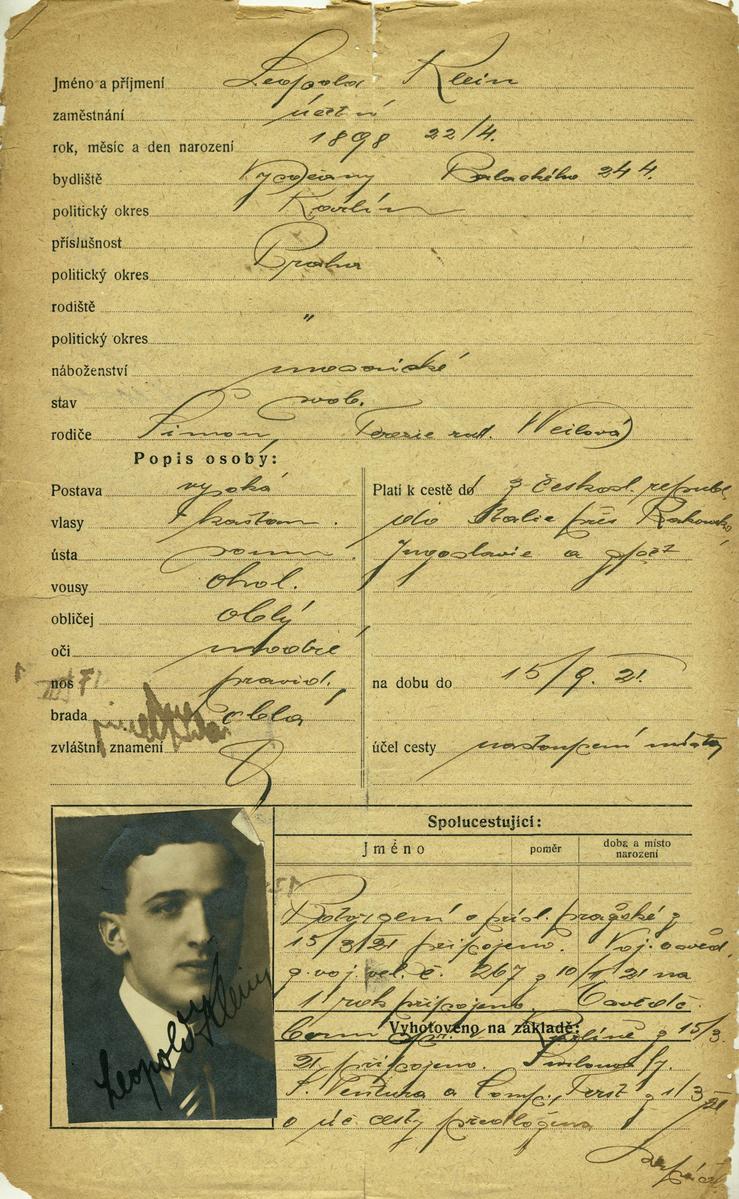 Jméno a příjmení Leopold Klein
zaměstnání účetní
rok, měsíc a den narození 1898 22/4.
bydliště Vysočany Palackého 244.
politický okres Karlín
příslušnost
politický okres Praha
rodiště
politický okres "
náboženství mosaické
stav svob.
rodiče Simon, Terezie roz. Weilová
Popis osoby:
Postava vysoká
vlasy kaštan.
ústa
vousy ohol.
obličej oblý
oči modré
nos pravid.
brada oblá
zvláštní znamení
Platí k cestě do z českosl. republ.
do Italie přes Rakousko
Jugoslavie a zpět
na dobu do 15/9. 21.
účel cesty nastoupení místa
Spolucestující:
Jméno poměr doba a místo narození
Potvrzení o přísl. pražské z
15/3 21 připojeno. Voj. osvěd.
z. voj. vel. č. 267 z 10/1 21 na
1 rok připojeno.
Vyhotoveno na základě:
z 15/3.
21 připojeno. fy.
S. Ventura a Comp., Terst z 1/3 21
o úč. cesty předložena
Leopold Klein